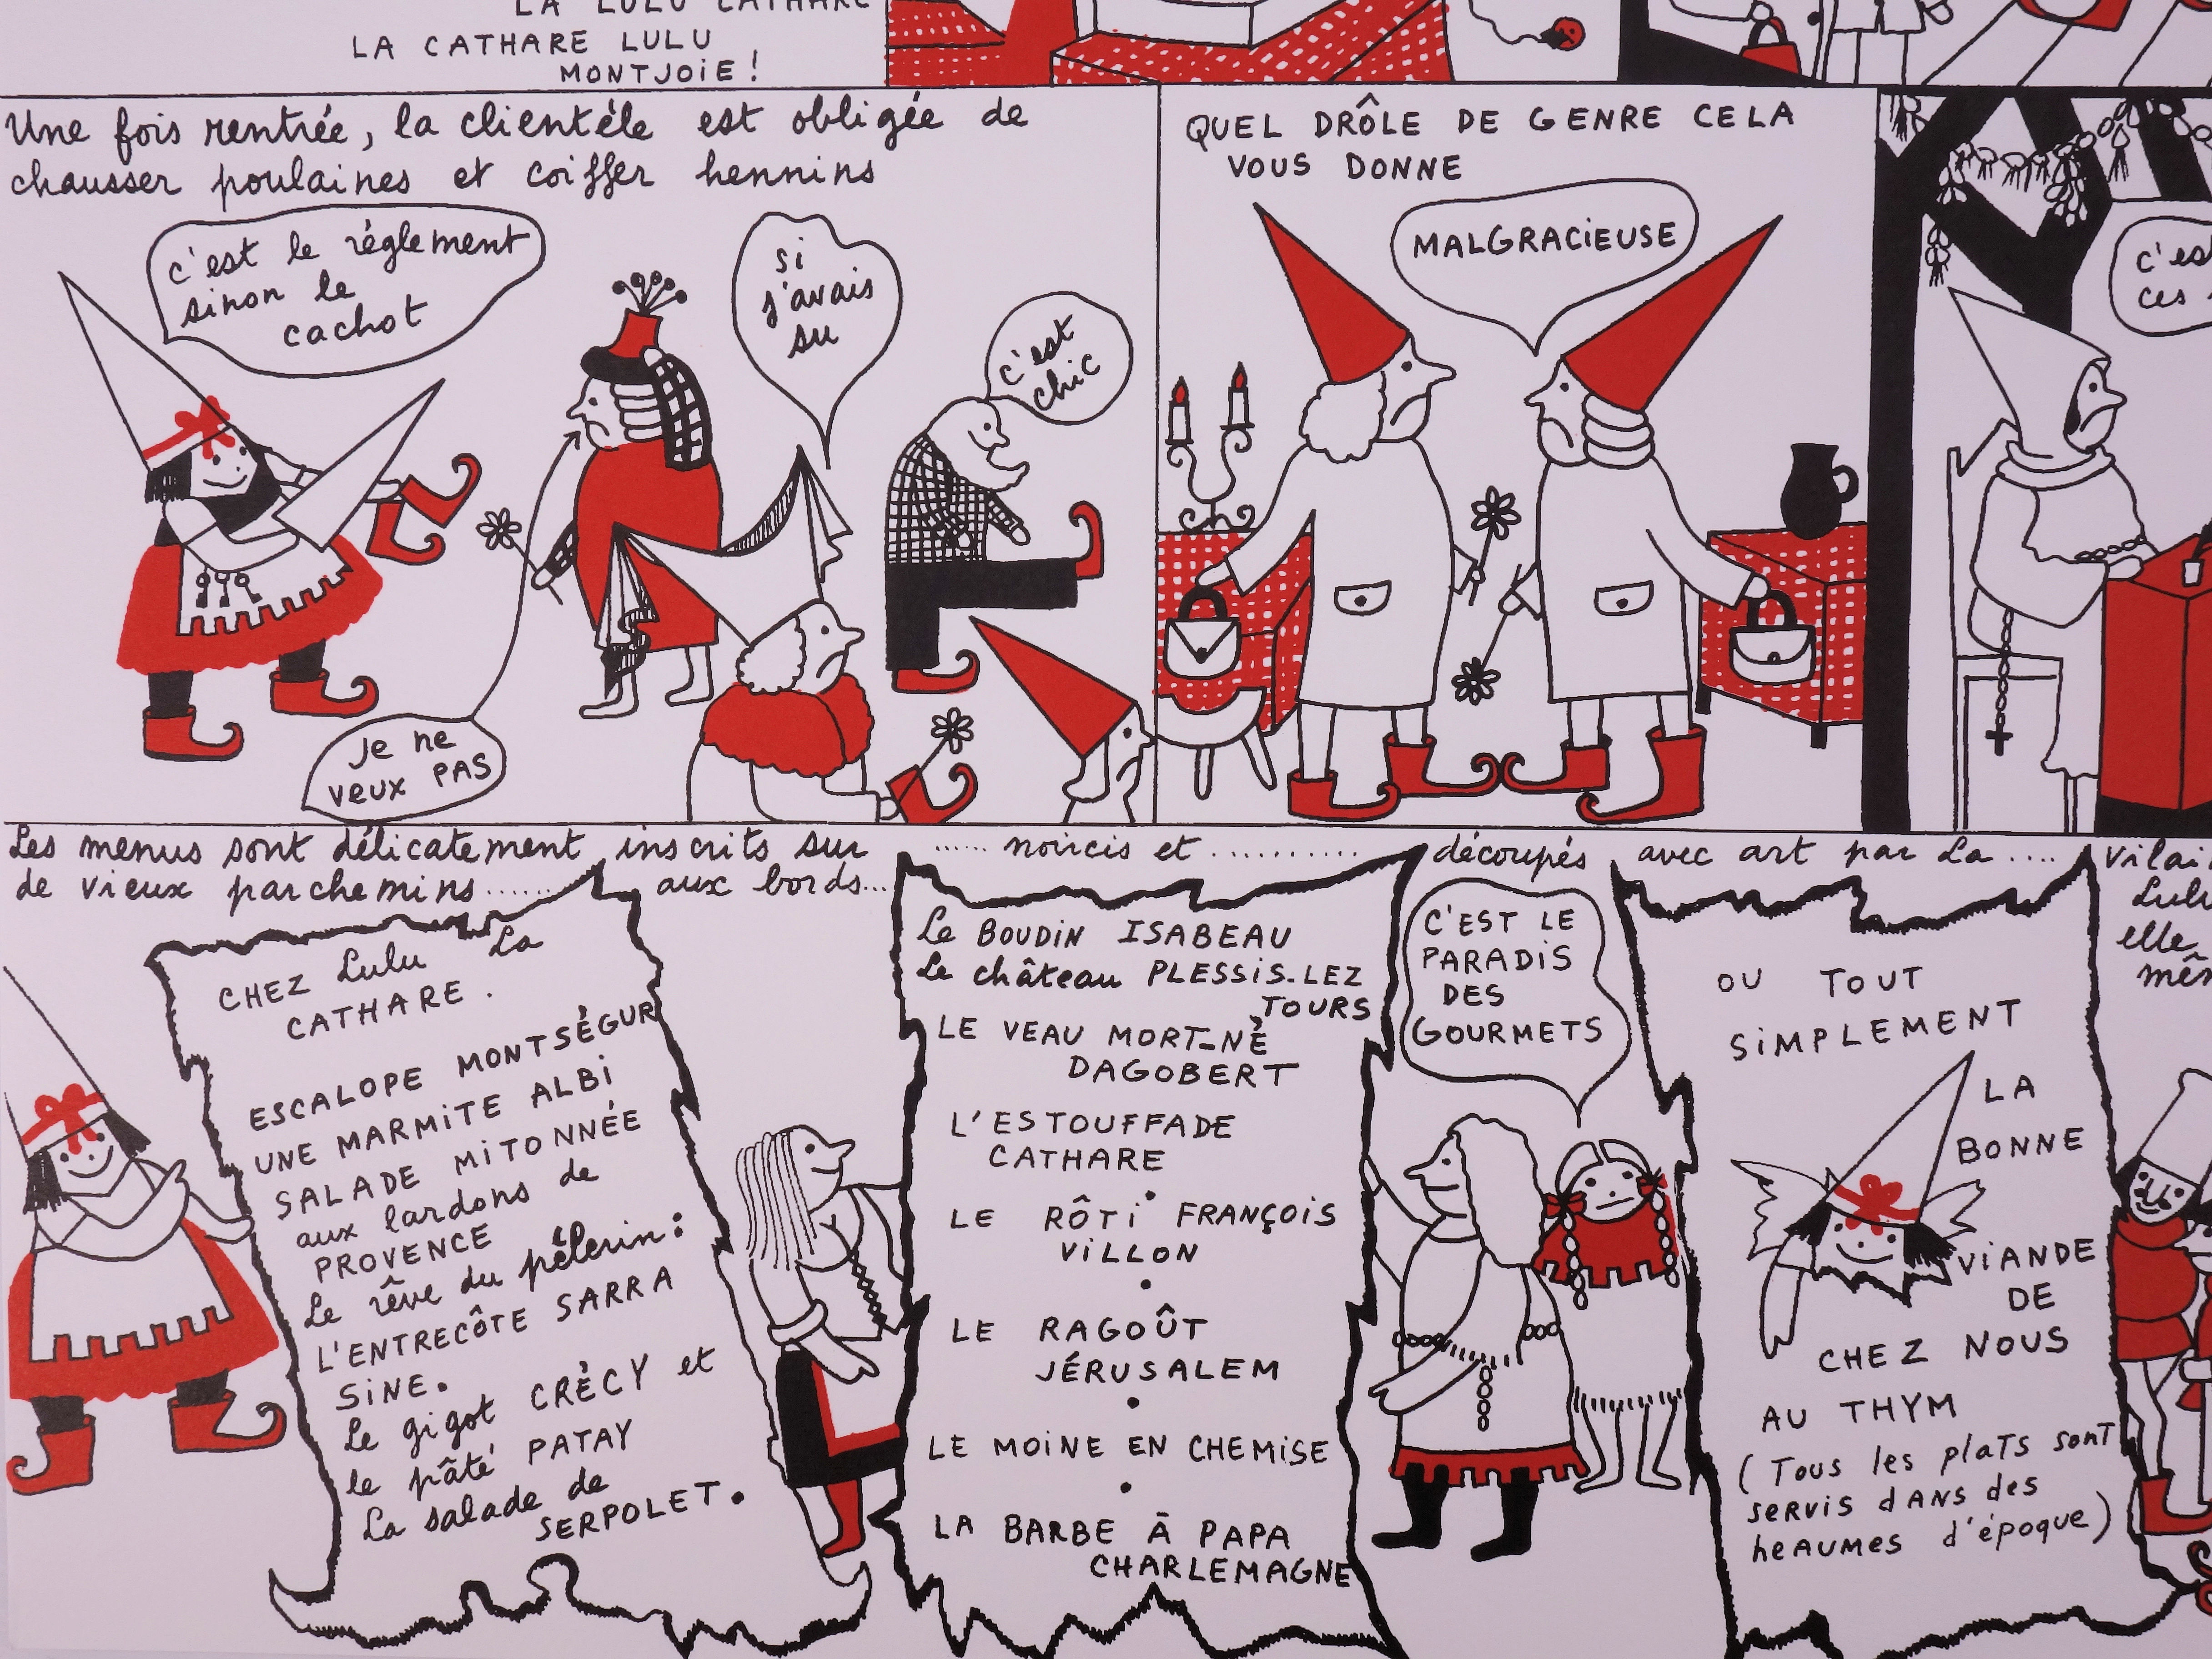 LA LULU CATHARE
LA CATHARE LULU
MONTJOIE !
Une fois rentrée, la clientéle est obligée de
chausser poulaines et coiffer hennins
c'est le réglement
sinon le
cachot
si
j'avais
su
c'est
chic
Je ne
veux PAS
QUEL DRÔLE DE GENRE CELA
VOUS DONNE
MALGRACIEUSE
c'es
ces
Les menus sont délicatement inscrits sur ...... noircis et .......... découpés avec art par La .... vilai
de vieux parchemins....... aux bords...
Lulu
elle
mêm
CHEZ Lulu La
CATHARE.
ESCALOPE MONTSÉGUR
UNE MARMITE ALBI
SALADE MITONNÉE
aux lardons de
PROVENCE
Le rêve du pêlerin:
L'ENTRECÔTE SARRA
SINE.
Le gigot CRÈCY et
le pâté PATAY
La salade de
SERPOLET.
Le BOUDIN ISABEAU
Le château PLESSIS-LEZ
TOURS
LE VEAU MORT-NÉ
DAGOBERT
L'ESTOUFFADE
CATHARE
LE RÔTI FRANÇOIS
VILLON
LE RAGOÛT
JÉRUSALEM
LE MOINE EN CHEMISE
LA BARBE À PAPA
CHARLEMAGNE
C'EST LE
PARADIS
DES
GOURMETS
OU TOUT
SIMPLEMENT
LA
BONNE
VIANDE
DE
CHEZ NOUS
AU THYM
(Tous les plaTs sont
servis dANS des
heAUMes d'époque)